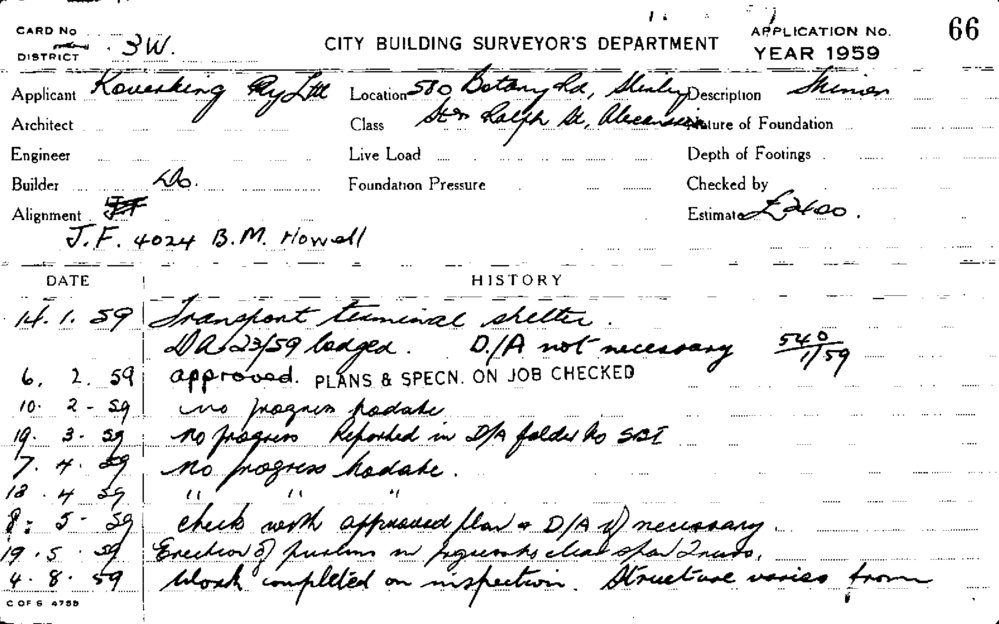 CARD No
DISTRICT 3W.
CITY BUILDING SURVEYOR'S DEPARTMENT
APPLICATION No.
YEAR 1959
66
Applicant Pty Ltd Location 580 Botany Rd, Description
Architect Class Ralph St, Alexandria Nature of Foundation
Engineer Live Load Depth of Footings
Builder Do. Foundation Pressure Checked by
Alignment Estimate £2400.
J.F. 4024 B.M. Howell
DATE HISTORY
14.1.59 Transport terminal shelter.
DA 23/59 lodged. D/A not necessary 540/1/59
6.2.59 approved. PLANS & SPECN. ON JOB CHECKED
10.2-59 no progress
19.3-59 no progress Reported in D/A folder to SBI
7.4.59 no progress
13.4 59 " " "
8:5-59 check with approved plan & D/A if necessary.
19.5.59 Erection of purlins in
4.8.59 Work completed on inspection. Structure varies from
C OF S 4755